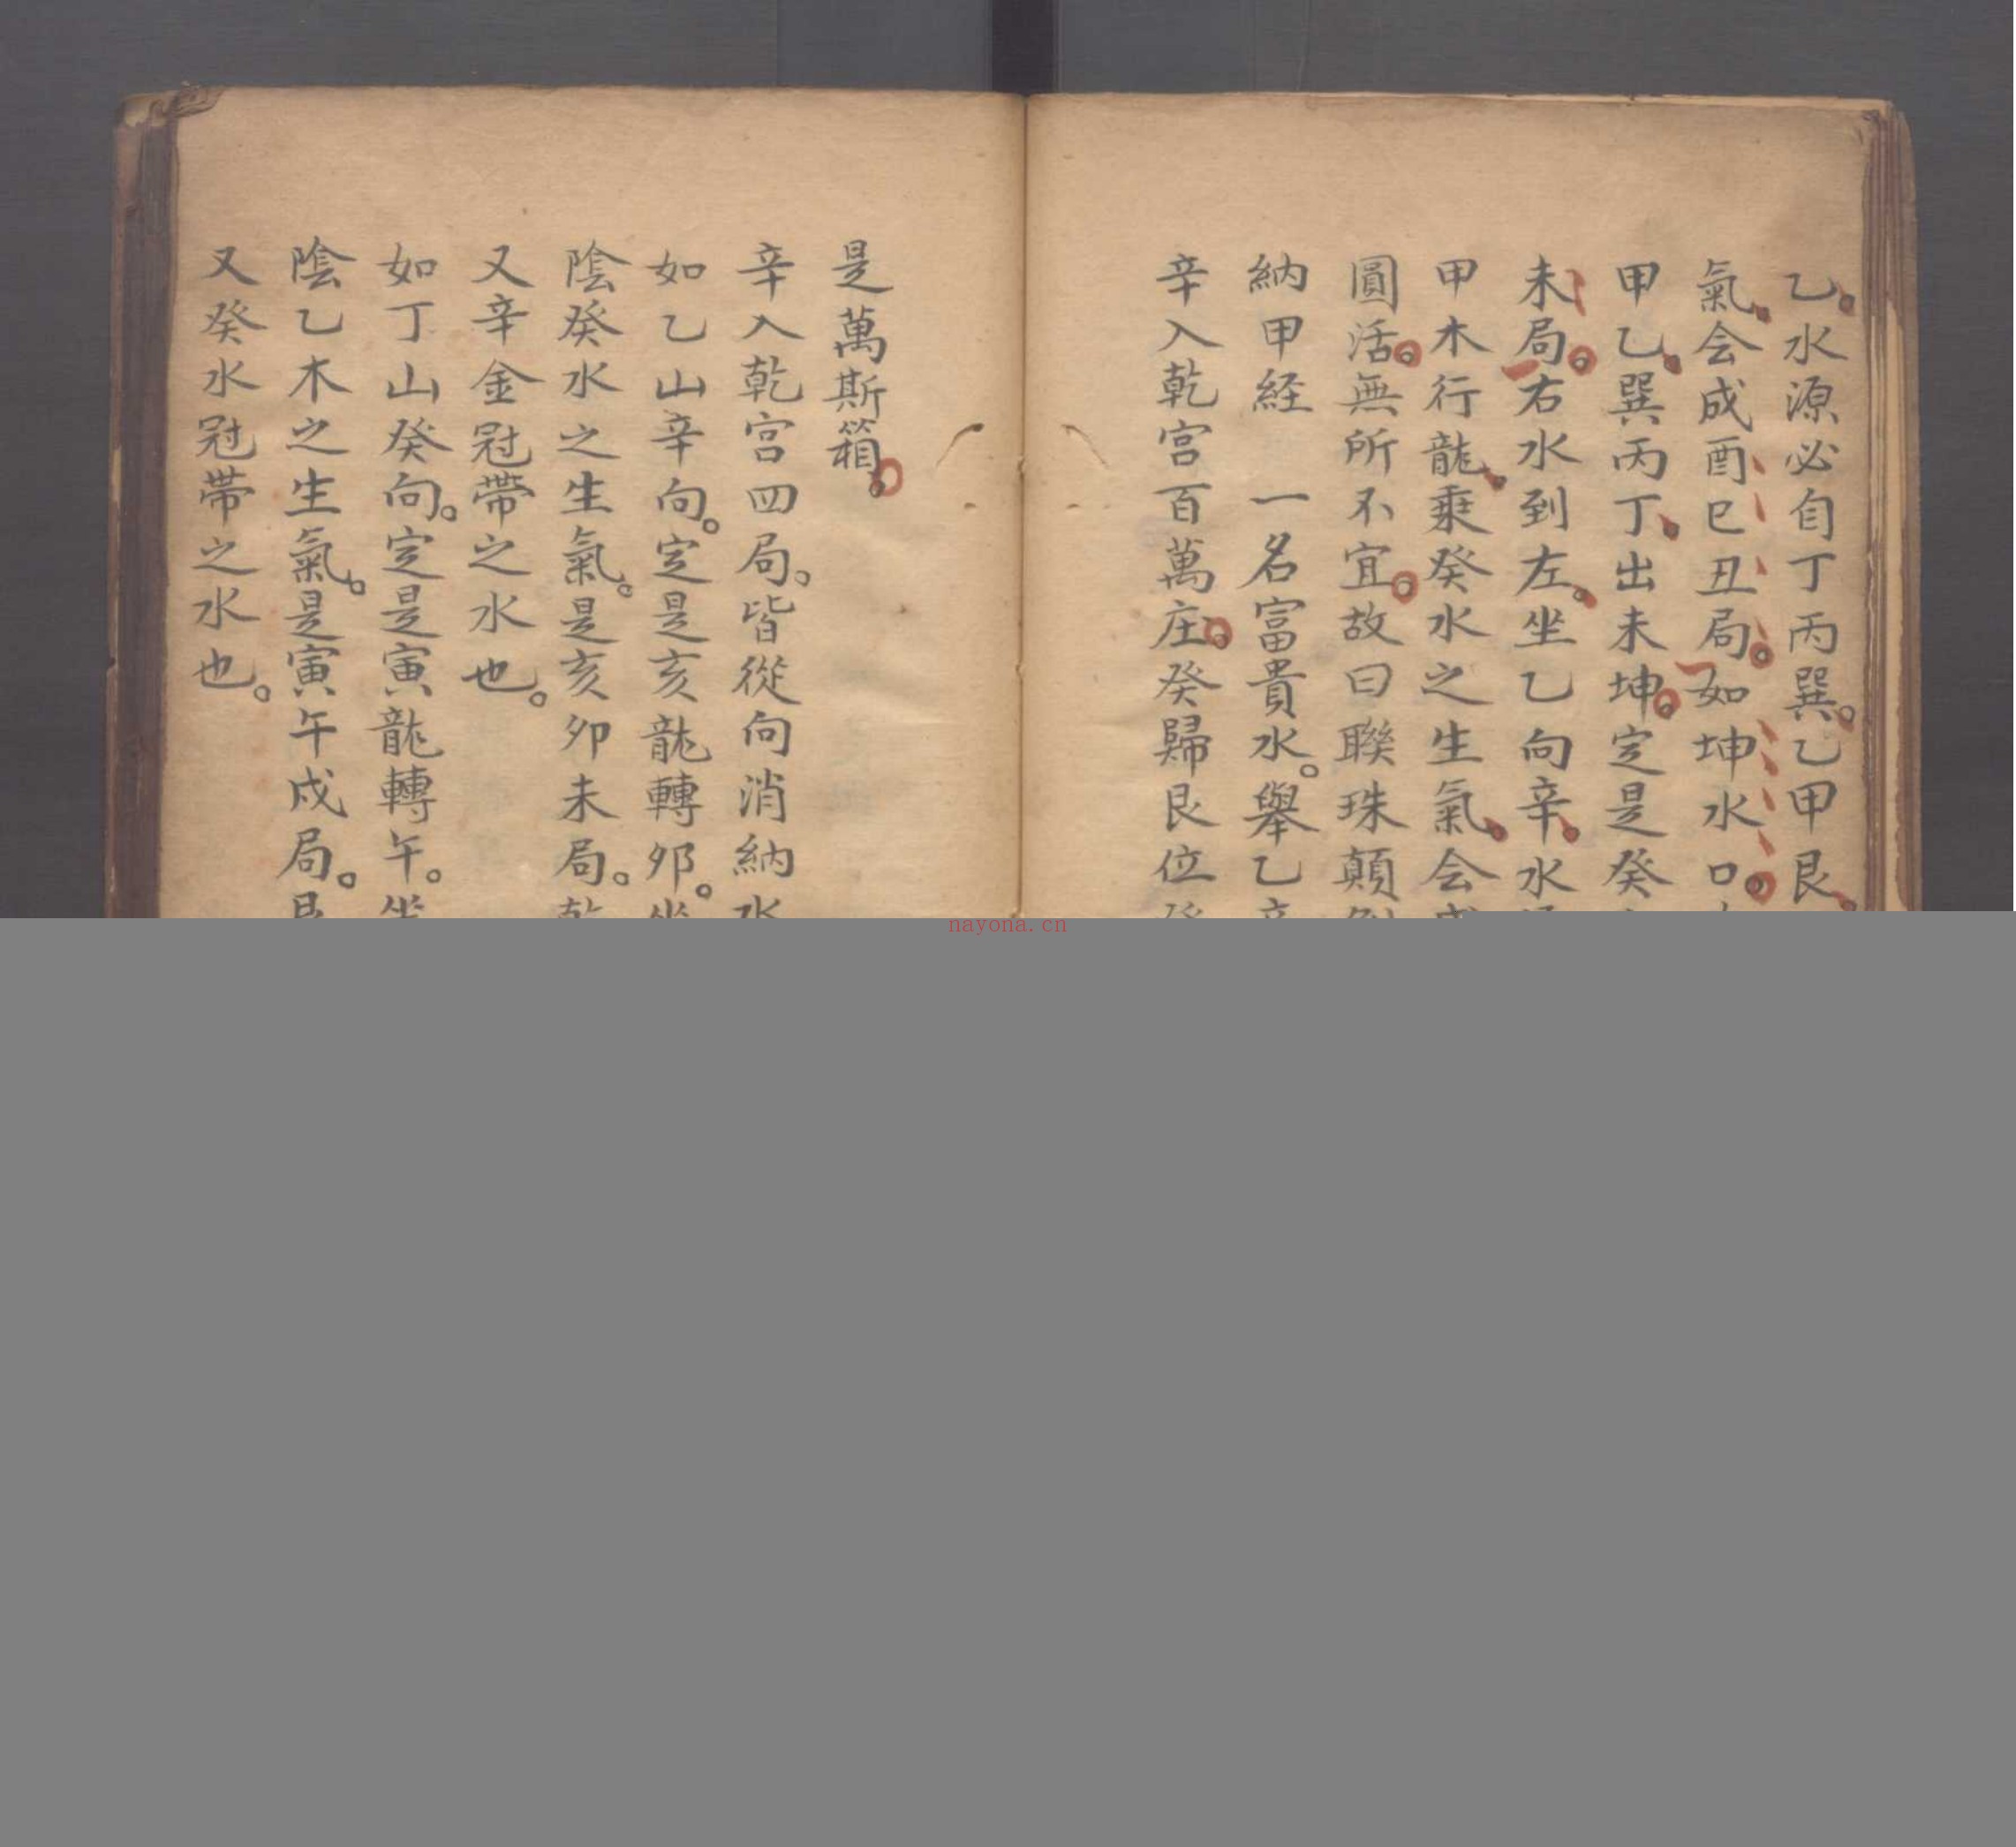 乙。水源必自丁丙巽。乙甲艮。
氣。会成酉巳丑局。如坤水口。
甲乙。巽丙丁。出未坤。定是癸
未局。右水到左。坐乙向辛。水
甲木行龍。乘癸水之生氣。会
圓活。無所不宜。故曰聯珠顛
納甲経 一名富貴水。舉乙
辛入乾宮百萬庄。癸歸艮位
是萬斯箱。
辛入乾宮四局。皆從向消納水
如乙山辛向。定是亥龍轉夘。坐
陰癸水之生氣。是亥夘未局。乾
又辛金冠帶之水也。
如丁山癸向。定是寅龍轉午。坐
陰乙木之生氣。是寅午戌局。艮
又癸水冠帶之水也。
nayona.cn